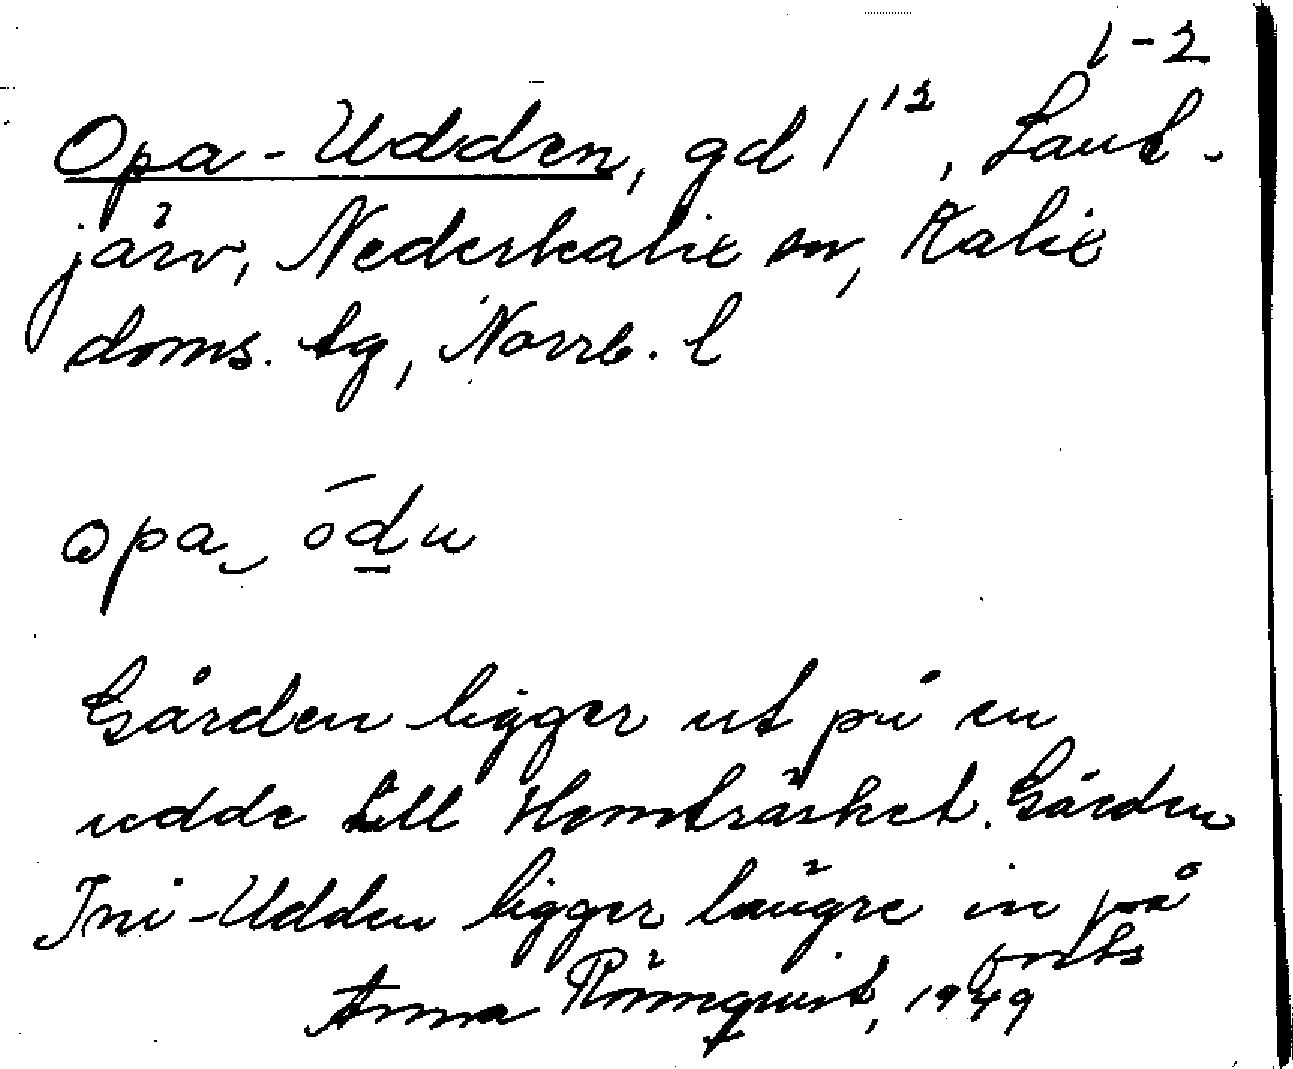 1-2
Opa-Udden, gd 1¹², Lant-
järv, Nederkalix sn, Kalix
doms. tg, Norrb. l
opa‿ ōd̲u
Gården ligger ut på en
udde till Hemträsket. Gården
Ini-Udden ligger längre in på
forts
Anna Rönnquist, 1949